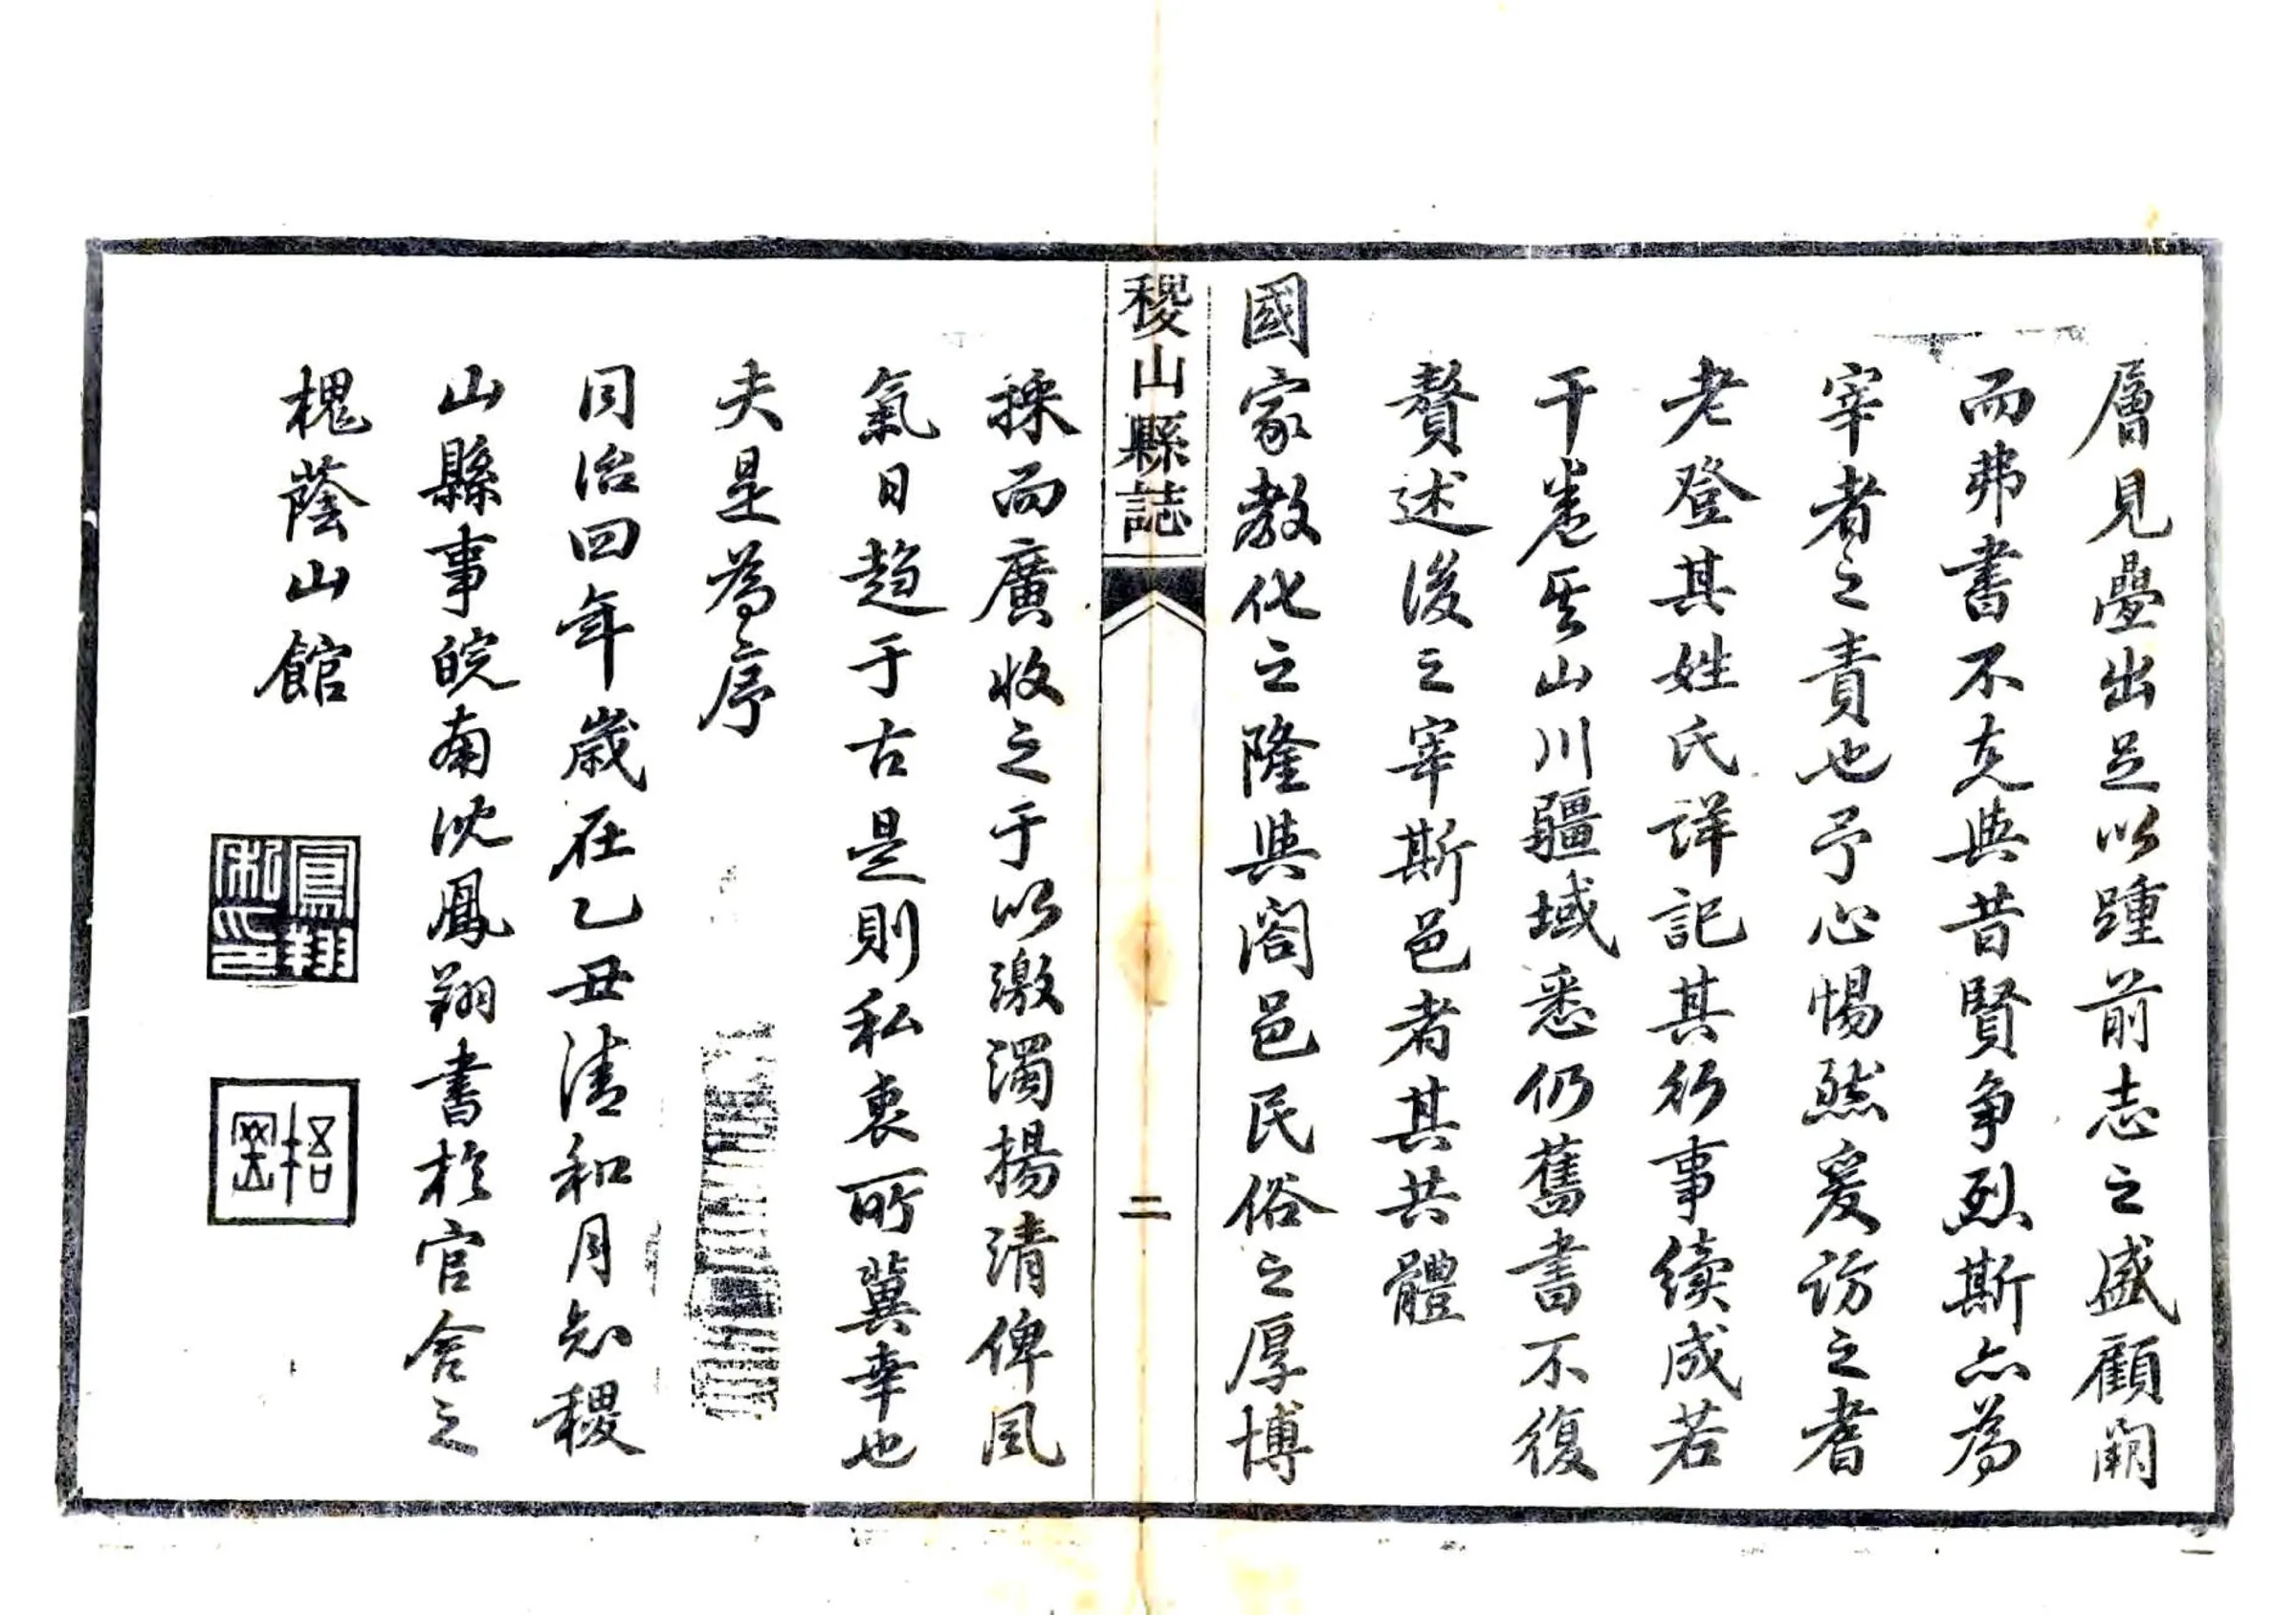 層見疊出足以踵前志之盛顧闕
而弗書不克與昔賢争烈斯亦為
宰者之責也予心惕然爰訪之耆
老登其姓氏詳記其行事續成若
干卷至山川疆域悉仍舊書不復
贅述後之宰斯邑者其共體
國家教化之隆與闔邑民俗之厚博
稷山縣誌
二
採而廣收之于以激濁揚清俾風
氣日趨于古是則私衷所冀幸也
夫是為序
同治四年歲在乙丑清和月知稷
山縣事皖南沈鳳翔書於官舍之
槐蔭山館
鳳翔私印
梧岡